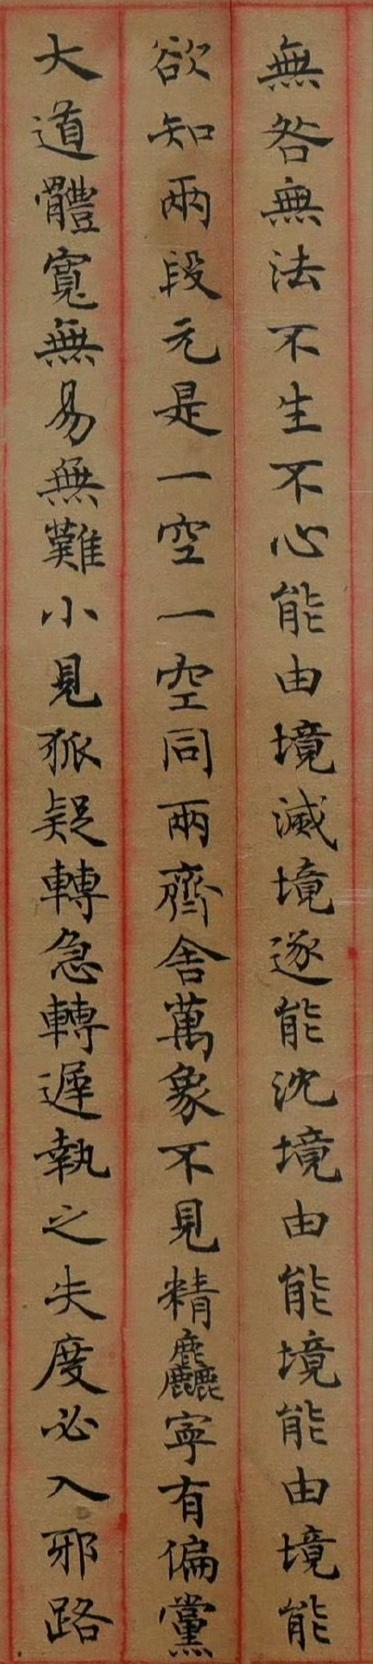 無咎無法不生不心能由境滅境逐能沈境由能境能由境能
欲知兩段元是一空一空同兩齊含萬象不見精麤寧有偏黨
大道體寬無易無難小見狐疑轉急轉遲執之失度必入邪路